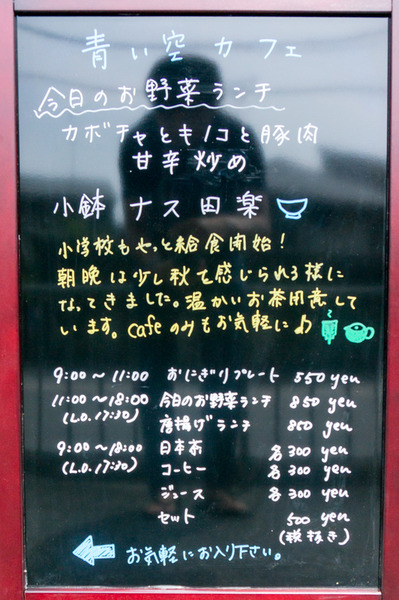 青い空カフェ
今日のお野菜ランチ
カボチャとキノコと豚肉
甘辛炒め
小鉢 ナス田楽
小学校もやっと給食開始!
朝晩は少し秋を感じられる様に
なってきました。温かいお茶用意して
います。cafeのみもお気軽に♪
9:00〜11:00 おにぎりプレート 550 yen
11:00〜18:00 今日のお野菜ランチ 850 yen
(L.O.17:30) 唐揚げランチ 850 yen
9:00〜18:00 日本茶 各300 yen
(L.O.17:30) コーヒー 各300 yen
ジュース 各300 yen
セット 500 yen
(税抜き)
お気軽にお入り下さい。